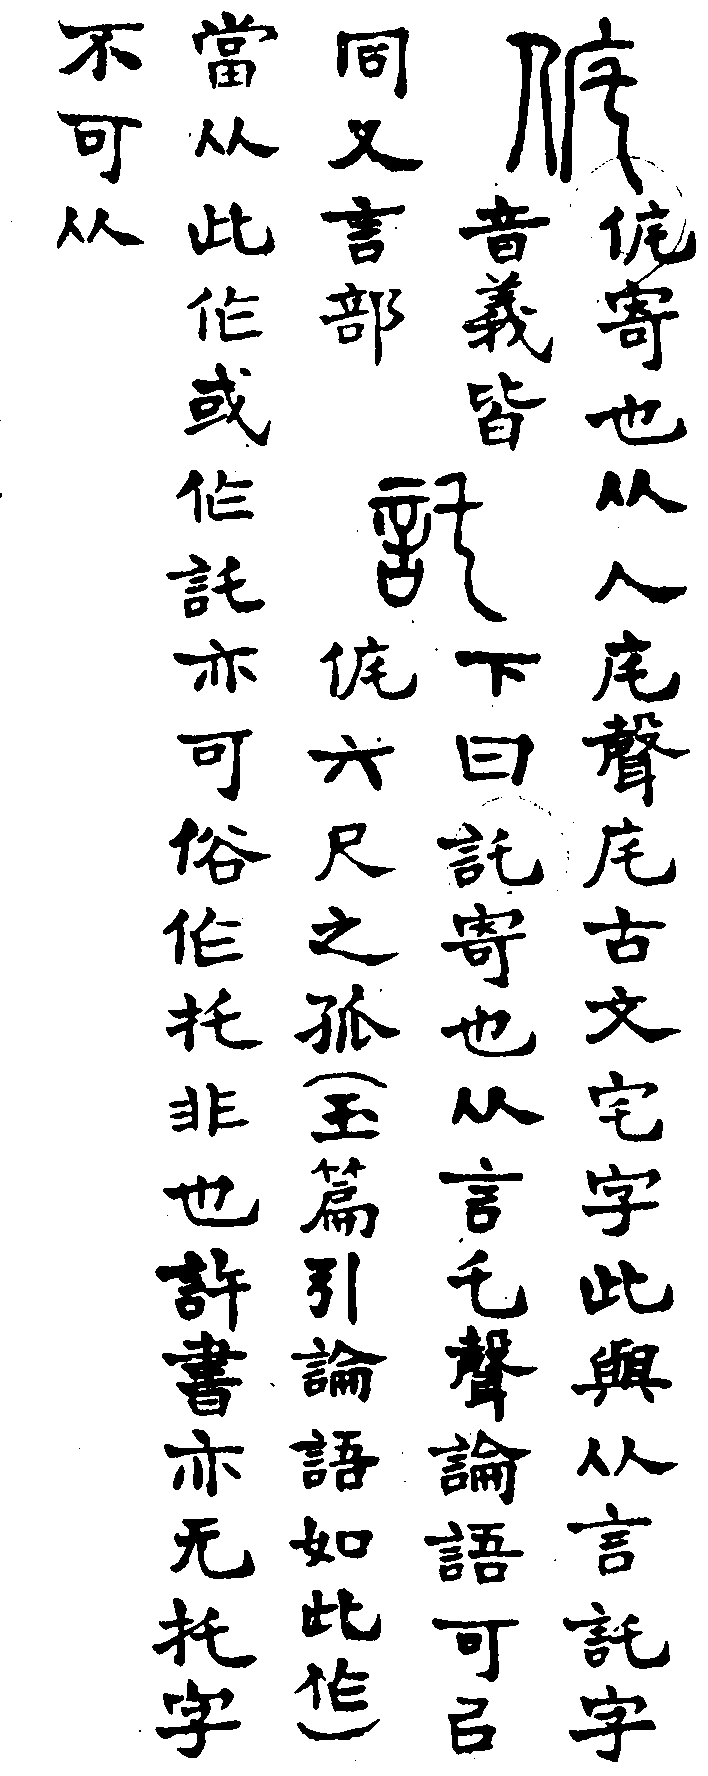 侂
侂寄也从人㡯聲㡯古文宅字此與从言託字
音義皆
同又言部
託
下曰託寄也从言乇聲論語可㠯
侂六尺之孤(玉篇引論語如此作)
當从此作或作託亦可俗作托非也許書亦无托字
不可从